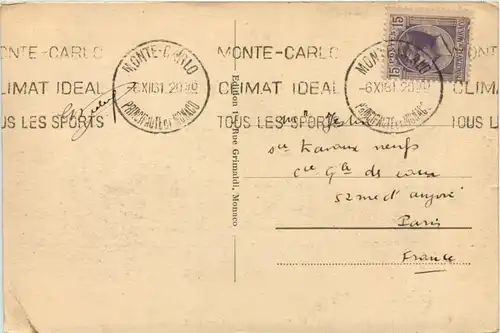 MONTE-CARLO
CLIMAT IDEAL
TOUS LES SPORTS
MONTE-CARLO
6XII31 2030
PRINCIPAUTE DE MONACO
MONTE-CARLO
CLIMAT IDEAL
TOUS LES SPORTS
15 15
MONTE-CARLO
-6XII31 2030
PRINCIPAUTE DE MONACO
MONTE-CARLO
CLIMAT
TOUS LES
Rue Grimaldi, Monaco
Sté travaux neufs
Cie Gle de
52 rue d'anjou
Paris
France